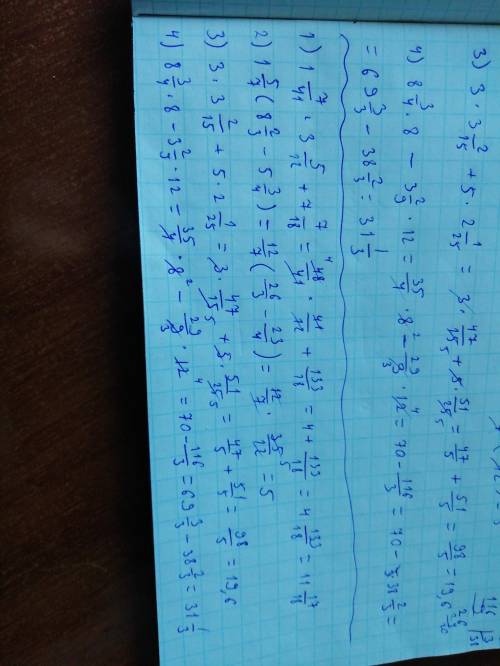 3) 3 · 3 2/15 + 5 · 2 1/25 = 3 · 47/15 + 5 · 51/25 = 47/5 + 51/5 = 98/5 = 19,6
4) 8 3/4 · 8 − 3 2/9 · 12 = 35/4 · 8 − 29/9 · 12 = 70 − 116/3 = 70 − 38 2/3 =
= 69 3/3 − 38 2/3 = 31 1/3
1) 1 7/41 · 3 5/12 + 7 7/18 = 48/41 · 41/12 + 133/18 = 4 + 133/18 = 4 133/18 = 11 17/18
2) 1 5/7 (8 2/3 − 5 3/4) = 12/7 (26/3 − 23/4) = 12/7 · 35/12 = 5
3) 3 · 3 2/15 + 5 · 2 1/25 = 3 · 47/15 + 5 · 51/25 = 47/5 + 51/5 = 98/5 = 19,6
4) 8 3/4 · 8 − 3 2/9 · 12 = 35/4 · 8 − 29/9 · 12 = 70 − 116/3 = 69 3/3 − 38 2/3 = 31 1/3